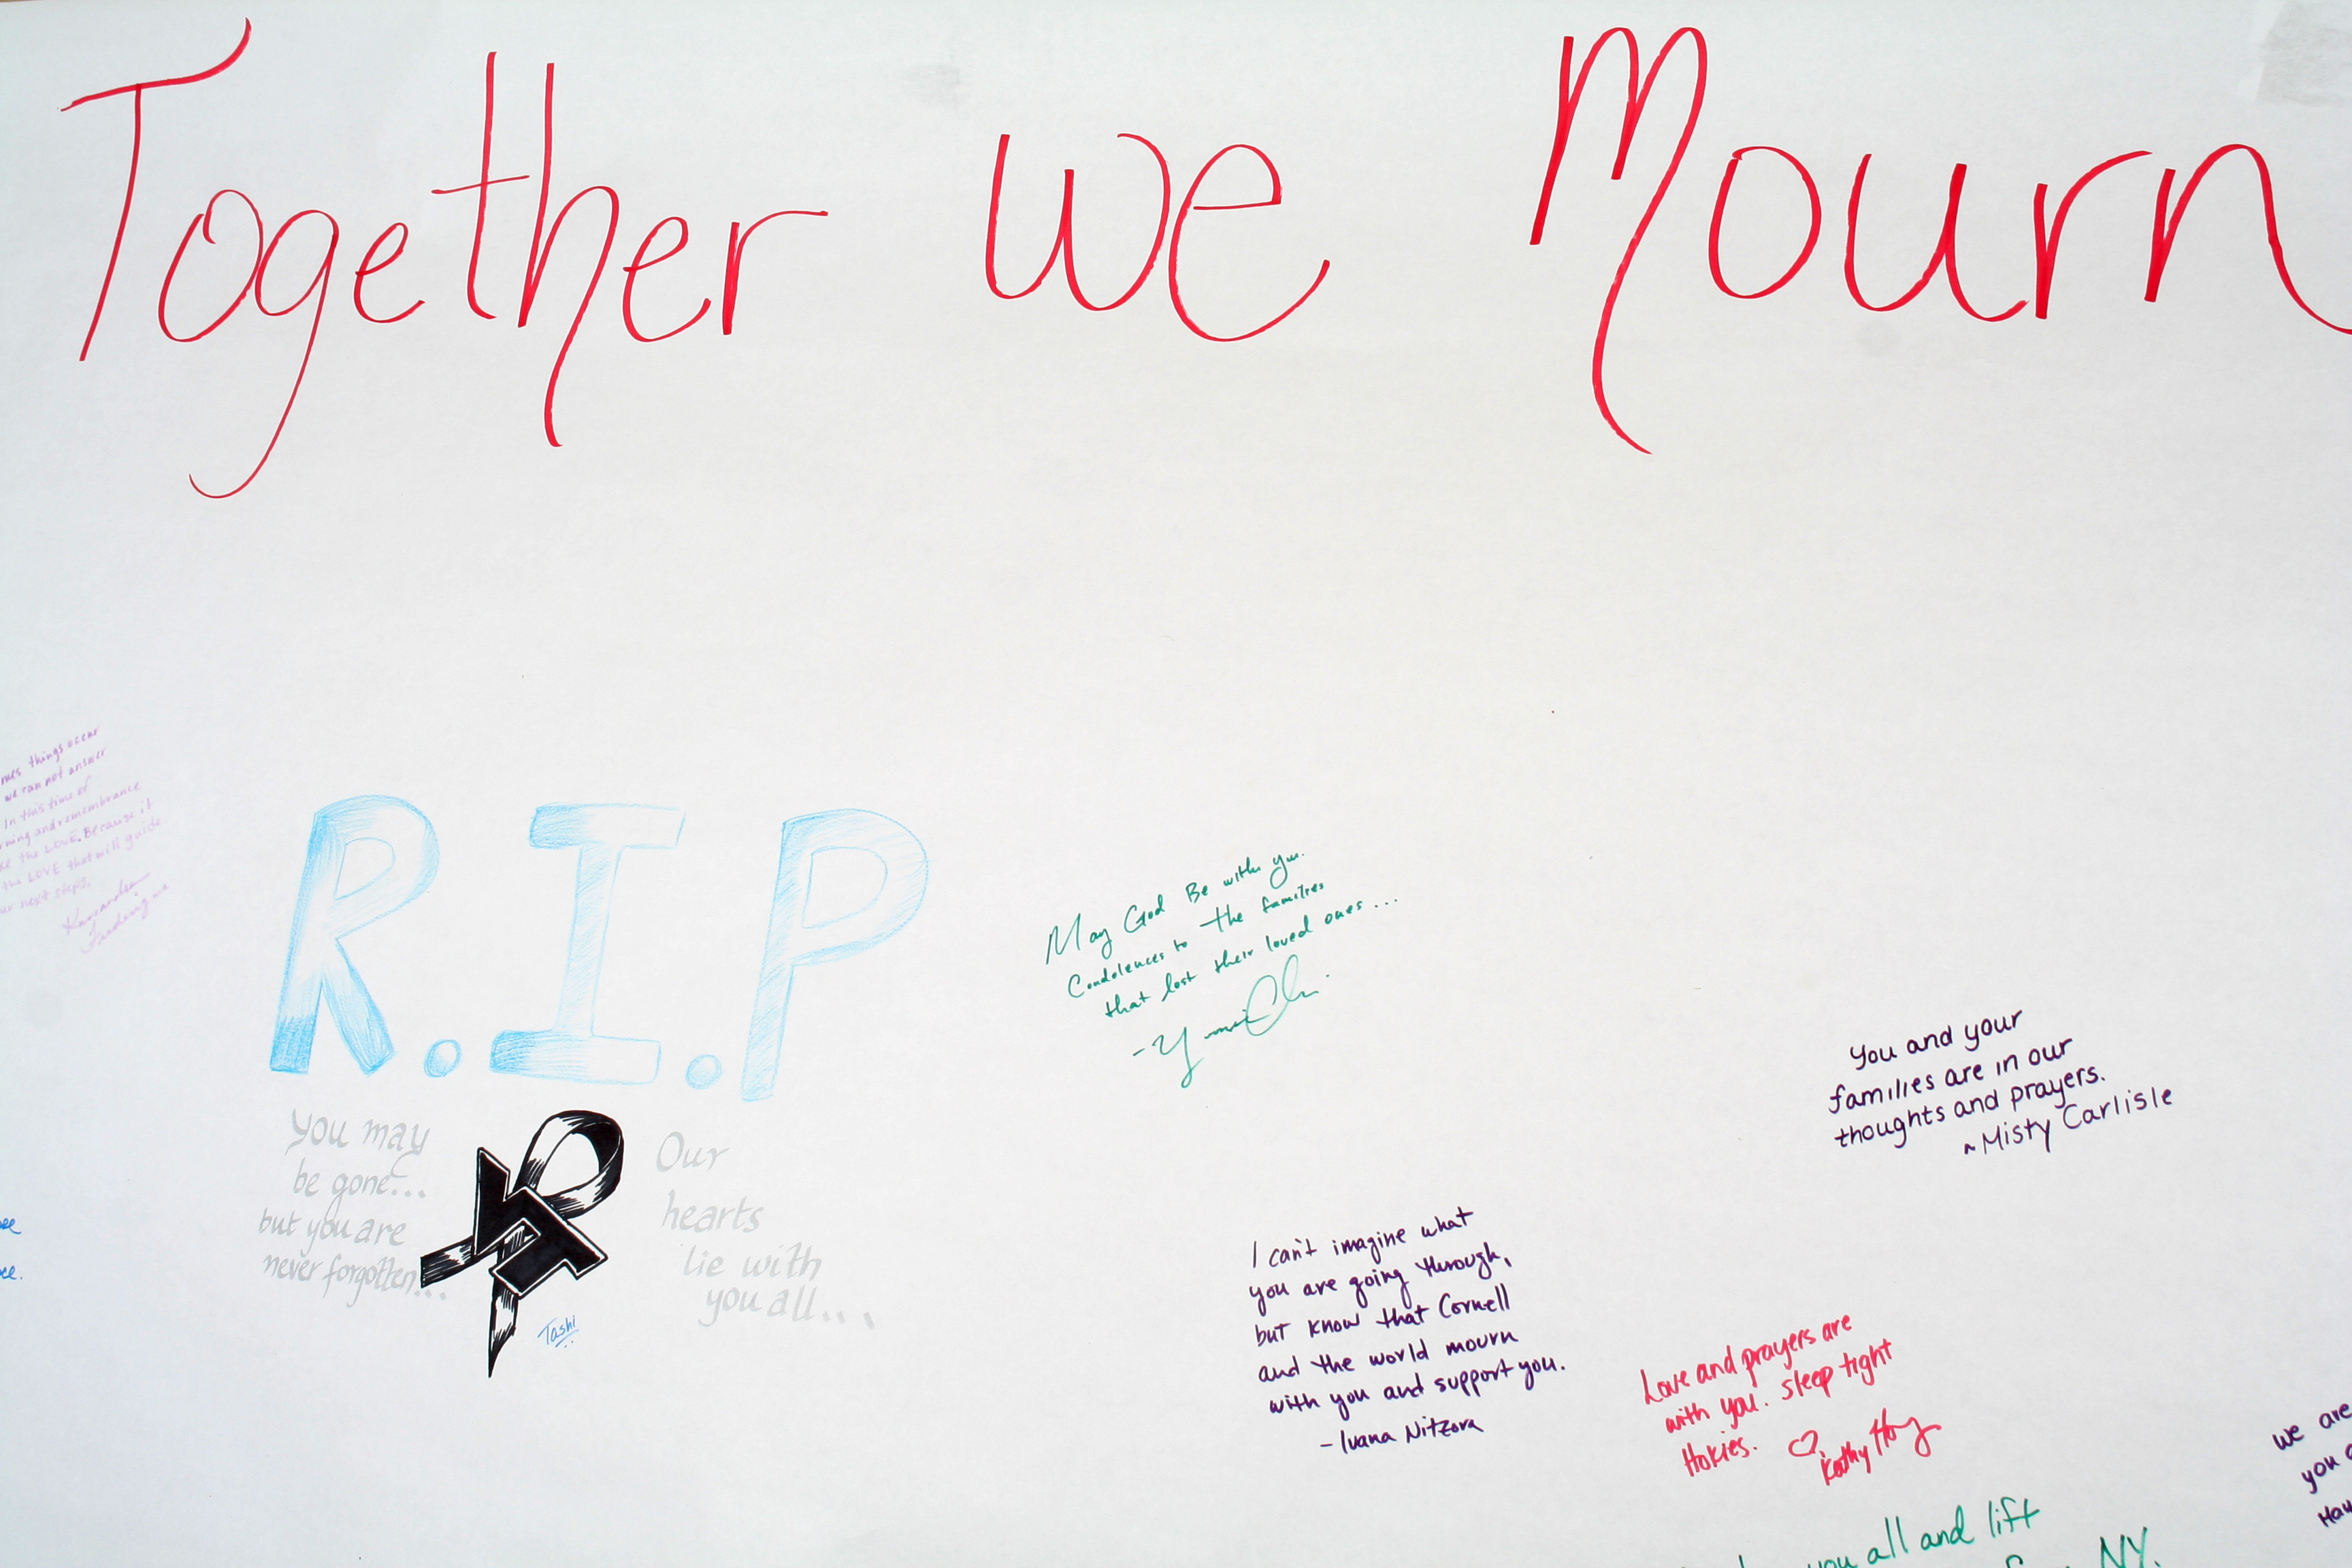 Together we Mourn
things occur
we can not answer
In this time of
and remembrance
the LOVE. Because it
the LOVE that will guide
next steps.
R.I.P
You may
be gone...
but you are
never forgotten...
VT
Our
hearts
lie with
you all...
Tashi
May God Be with you.
Condolences to the families
that lost their loved ones...
You and your
families are in our
thoughts and prayers.
~Misty Carlisle
I can't imagine what
you are going through,
but know that Cornell
and the world mourn
with you and support you.
- Ivana Nitzova
Love and prayers are
with you. sleep tight
Hokies. ♡, Kathy
we are
you
you all and lift
NY.